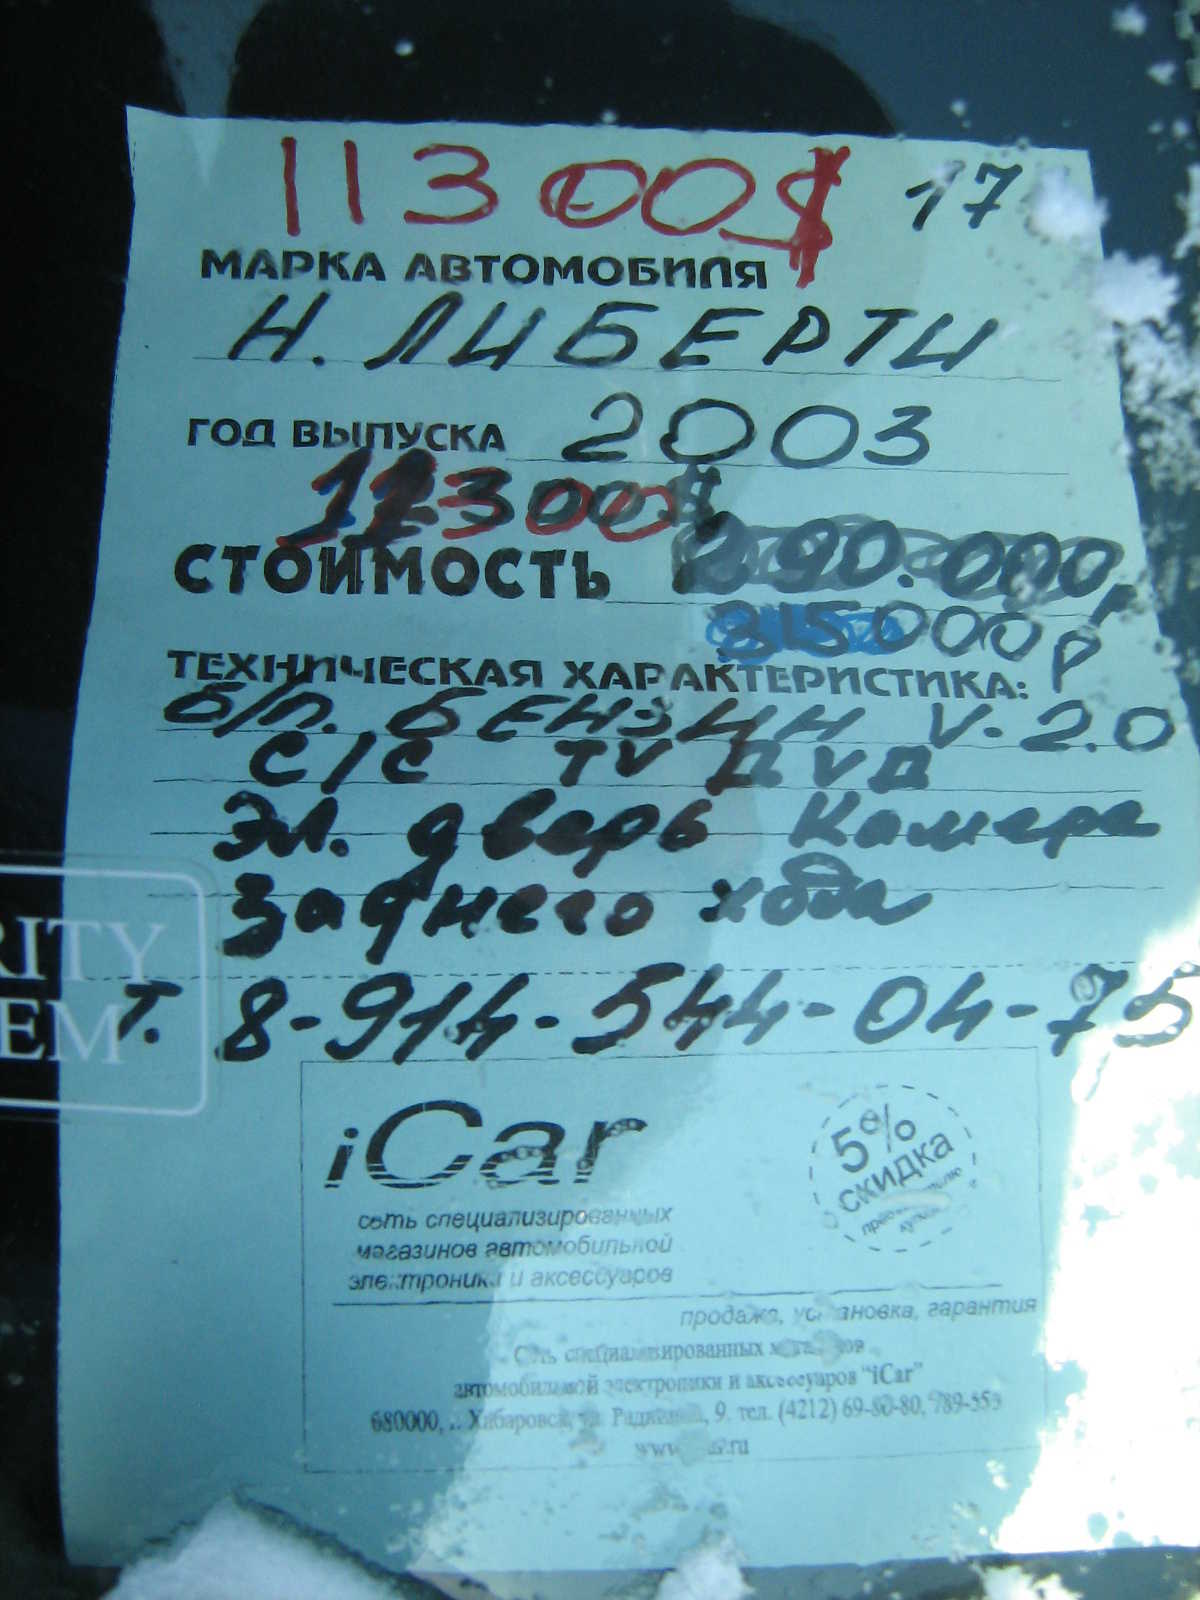 11300$ 17
МАРКА АВТОМОБИЛЯ
Н. ЛИБЕРТИ
ГОД ВЫПУСКА 2003
300$
СТОИМОСТЬ 290.000р
315000р
ТЕХНИЧЕСКАЯ ХАРАКТЕРИСТИКА:
б/п. БЕНЗИН V-2.0
С/С TV ДVД
Эл. дверь Камера
Заднего хода
RITY
EM
Т. 8-914-544-04-75
iCar
5%
скидка
сеть специализированных
магазинов автомобильной
электроники и аксессуаров
продажа, установка, гарантия
Сеть специализированных магазинов
автомобильной электроники и аксессуаров "iCar"
680000, г. Хабаровск, ул. 9, тел. (4212) 69-80-80, 789-553